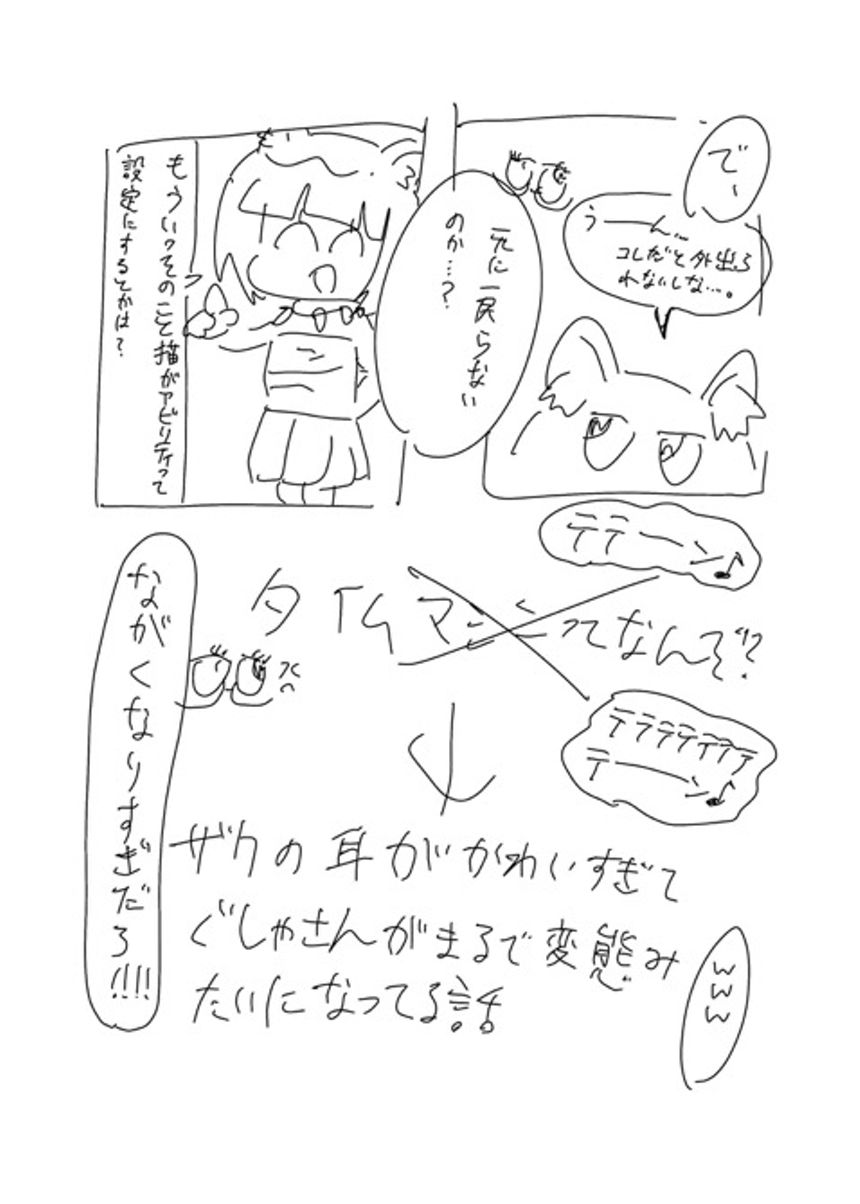 で、
うーーん…
コレだと外出ら
れないしな…。
元に戻らない
のか…？
もういっそのこと猫がアビリティって
設定にするとかは？
テテーーン♪
タイムマシンってなんぞ!?
テテテテテテテ
テーーン♪
ながくなりすぎだろ!!!!
ザクの耳がかわいすぎて
ぐしゃさんがまるで変態み
たいになってる話
www